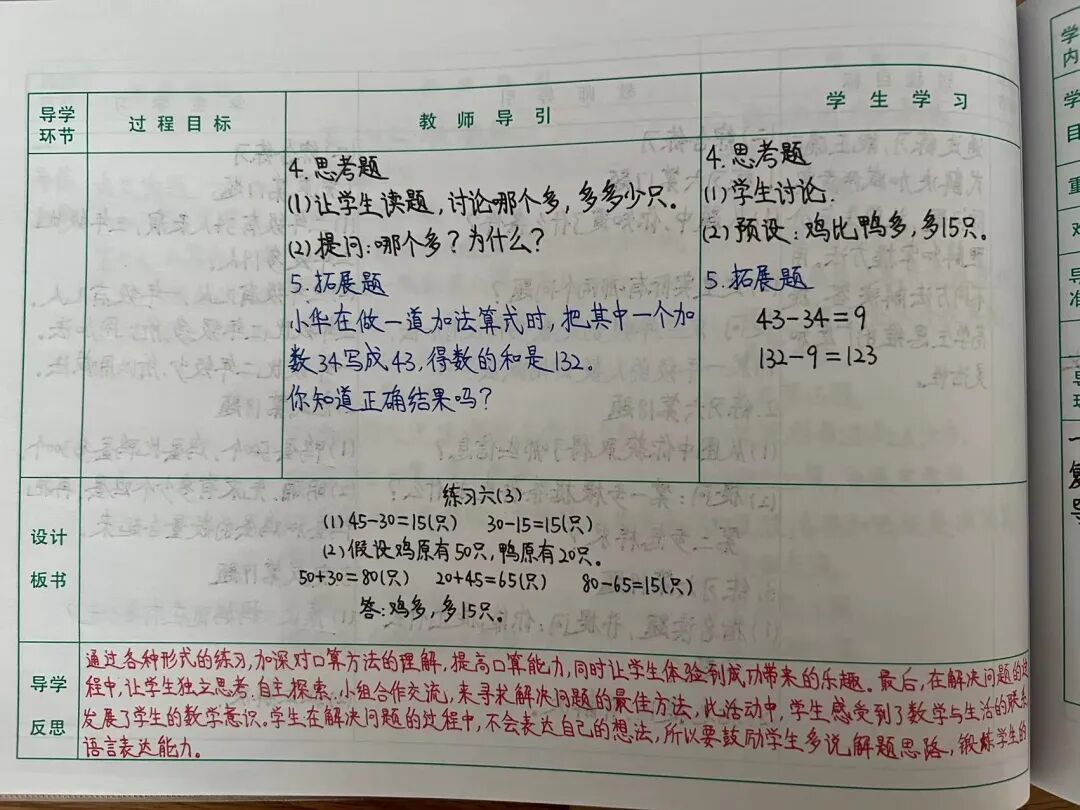 导学环节
过程目标
教师导引
学生学习
4.思考题
(1)让学生读题,讨论哪个多,多多少只。
(2)提问:哪个多?为什么?
5.拓展题
小华在做一道加法算式时,把其中一个加
数34写成43,得数的和是132。
你知道正确结果吗?
4.思考题
(1)学生讨论.
(2)预设:鸡比鸭多,多15只。
5.拓展题
43-34=9
132-9=123
设计
板书
练习六(3)
(1)45-30=15(只) 30-15=15(只)
(2)假设鸡原有50只,鸭原有20只。
50+30=80(只) 20+45=65(只) 80-65=15(只)
答:鸡多,多15只。
导学
反思
通过各种形式的练习,加深对口算方法的理解,提高口算能力,同时让学生体验到成功带来的乐趣。最后,在解决问题的过
程中,让学生独立思考.自主探索.小组合作交流,来寻求解决问题的最佳方法,此活动中,学生感受到了数学与生活的联系
发展了学生的数学意识。学生在解决问题的过程中,不会表达自己的想法,所以要鼓励学生多说解题思路,锻炼学生的
语言表达能力。
学
内
学
目
重
难
导
准
导
环
一
复
导